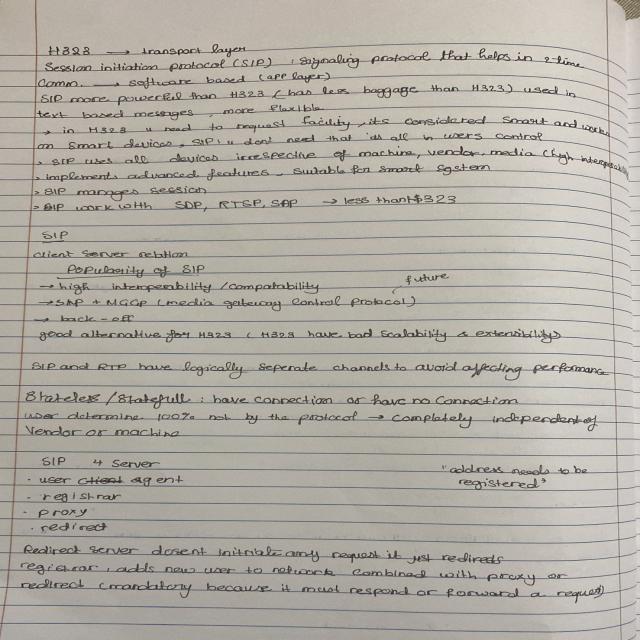 H323 → transport layer
Session initiation protocol (SIP) : signaling protocol that helps in 2-time
Comm. → software based (app layer)
SIP more powerful than H323 (has less baggage than H323) used in
text based messages, more flexible
→ in H323 u need to request facility, its considered smart and works
on smart devices, SIP u dont need that its all in users control
> SIP uses all devices irrespective of machine, vendor, media (high interopability
> implements advanced features, suitable for smart system
> SIP manages session
> SIP work with SDP, RTSP, SAP → less than H323
SIP
client server relation
Popularity of SIP
→ high interoperability / compatability
future
→ SAP + MGCP (media gateway control protocol)
→ back-off
good alternative for H323 ( H323 have bad scalability & extensibility)
SIP and RTP have logically seperate channels to avoid affecting performance
Stateless / Statefull : have connection or have no connection
user determine 100% not by the protocol → completely independent of
vendor or machine
SIP 4 server
"address needs to be
· user client agent
registered"
· registrar
· proxy
· redirect
Redirect server dosent initniate any request it just redireds
registrar, adds new user to network combined with proxy or
redirect (mandatory because it must respond or forward a request)